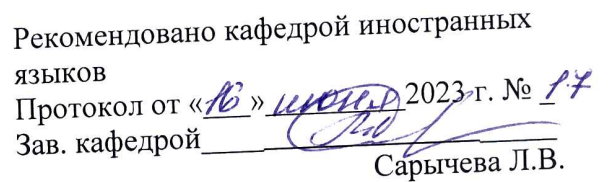 Рекомендовано кафедрой иностранных
языков
Протокол от «16» июня 2023 г. № 17
Зав. кафедрой
Сарычева Л.В.